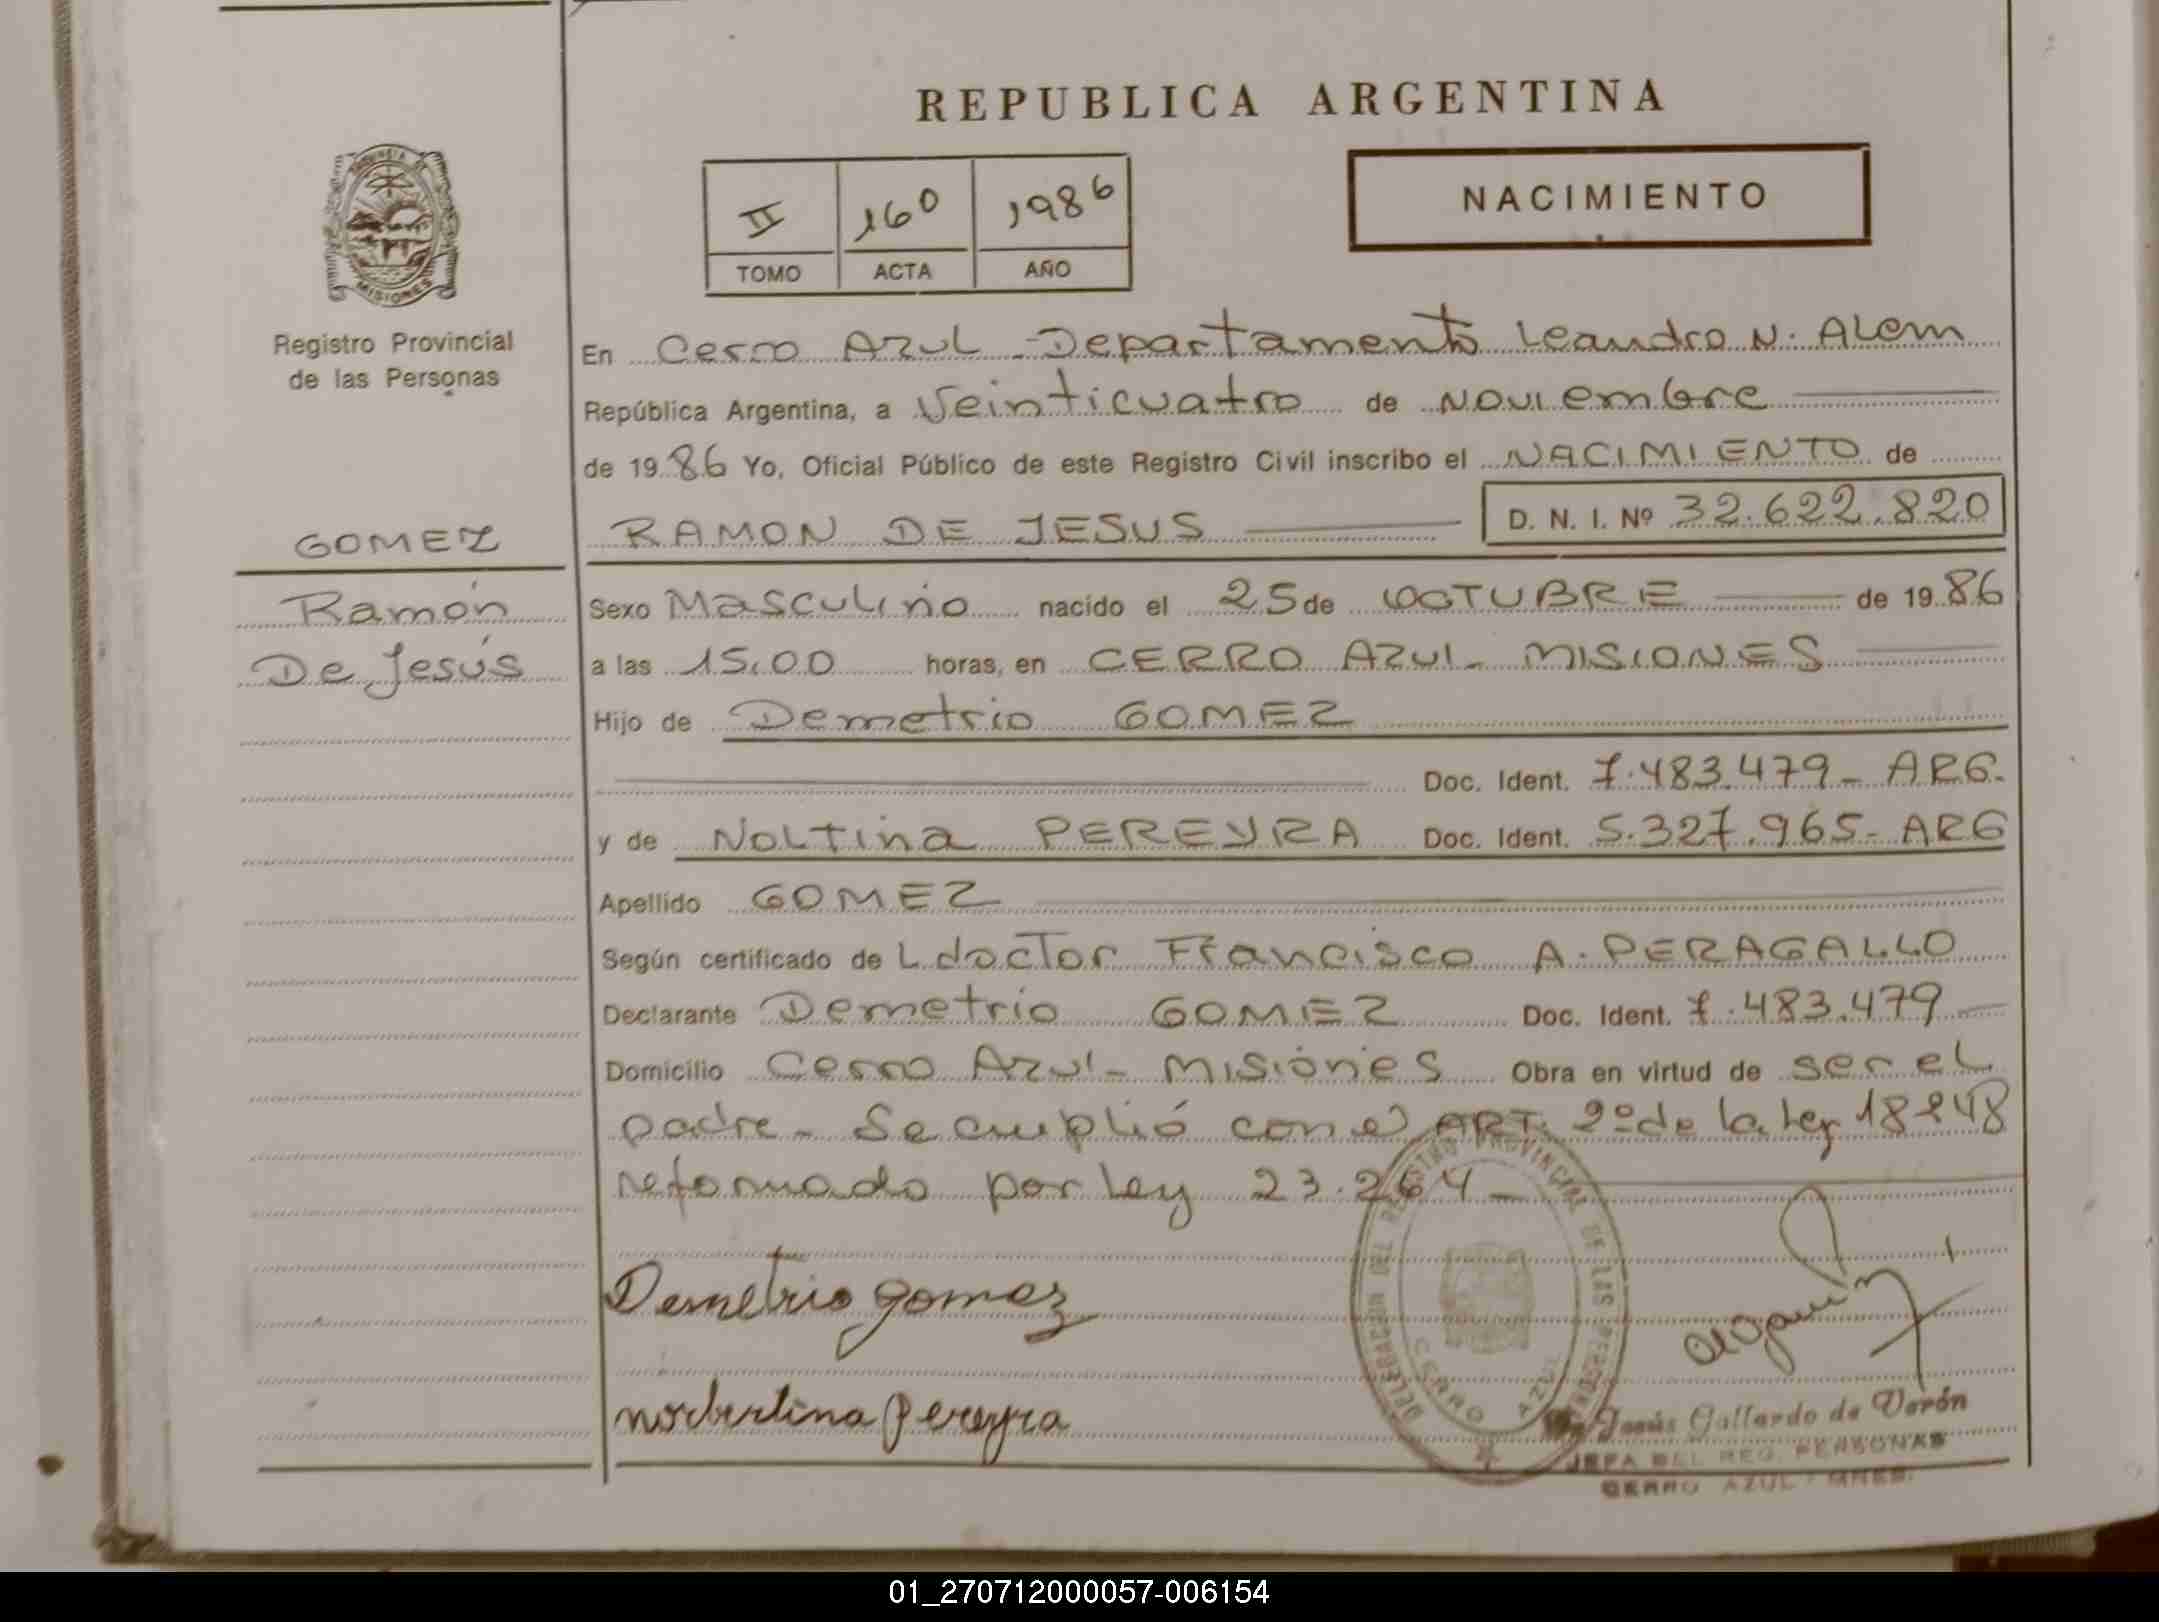 REPUBLICA ARGENTINA
PROVINCIA DE
MISIONES
Registro Provincial
de las Personas
II 160 1986
TOMO ACTA AÑO
NACIMIENTO
En Cerro Azul - Departamento Leandro N. Alem
República Argentina, a Veinticuatro de Noviembre
de 19 86 Yo, Oficial Público de este Registro Civil inscribo el NACIMIENTO de
GOMEZ
RAMON DE JESUS D. N. I. Nº 32.622.820
Ramón
De Jesús
Sexo Masculino nacido el 25 de OCTUBRE de 19 86
a las 15,00 horas, en CERRO AZUL - MISIONES
Hijo de Demetrio GOMEZ
Doc. Ident. 7.483.479 - ARG.
y de NOLTINA PEREYRA Doc. Ident. 5.327.965 - ARG
Apellido GOMEZ
Según certificado de L doctor Francisco A. PERAGALLO
Declarante Demetrio GOMEZ Doc. Ident. 7.483.479
Domicilio Cerro Azul - Misiones Obra en virtud de ser el
padre - Se cumplió con el ART. 2º de la Ley 18248
reformado por Ley 23.264 -
Demetrio gomez
norbertina pereyra
DELEGACION DEL REGISTRO PROVINCIAL DE LAS PERSONAS
CERRO AZUL
Jesús Gallardo de Verón
JEFA DEL REG. PERSONAS
CERRO AZUL - MNES.
01_270712000057-006154